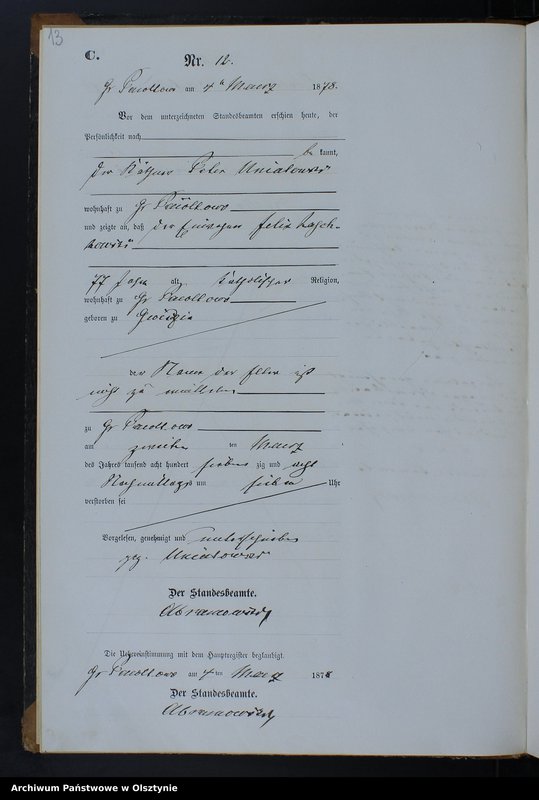 13
C.
Nr. 12.
Gr Pacoltowo am 4ten Maerz 1878.
Vor dem unterzeichneten Standesbeamten erschien heute, der
Persönlichkeit nach
be kannt,
der Käthner Peter Uniatowski
wohnhaft zu Gr Pacoltowo
und zeigte an, daß der Einwohner Felix Lasch-
kowski
77 Jahr alt, katholischer Religion,
wohnhaft zu Gr Pacoltowo
geboren zu
der Namen der Eltern ist
nicht zu ermitteln
zu Gr Pacoltowo
am zweiten ten Maerz
des Jahres tausend acht hundert sieben zig und acht
Nachmittags um sieben Uhr
verstorben sei
Vorgelesen, genehmigt und unterschrieben
gez. Uniatowski
Der Standesbeamte.
Abramowski
Die Uebereinstimmung mit dem Hauptregister beglaubigt.
Gr Pacoltowo am 4ten Maerz 1878
Der Standesbeamte.
Abramowski
Archiwum Państwowe w Olsztynie